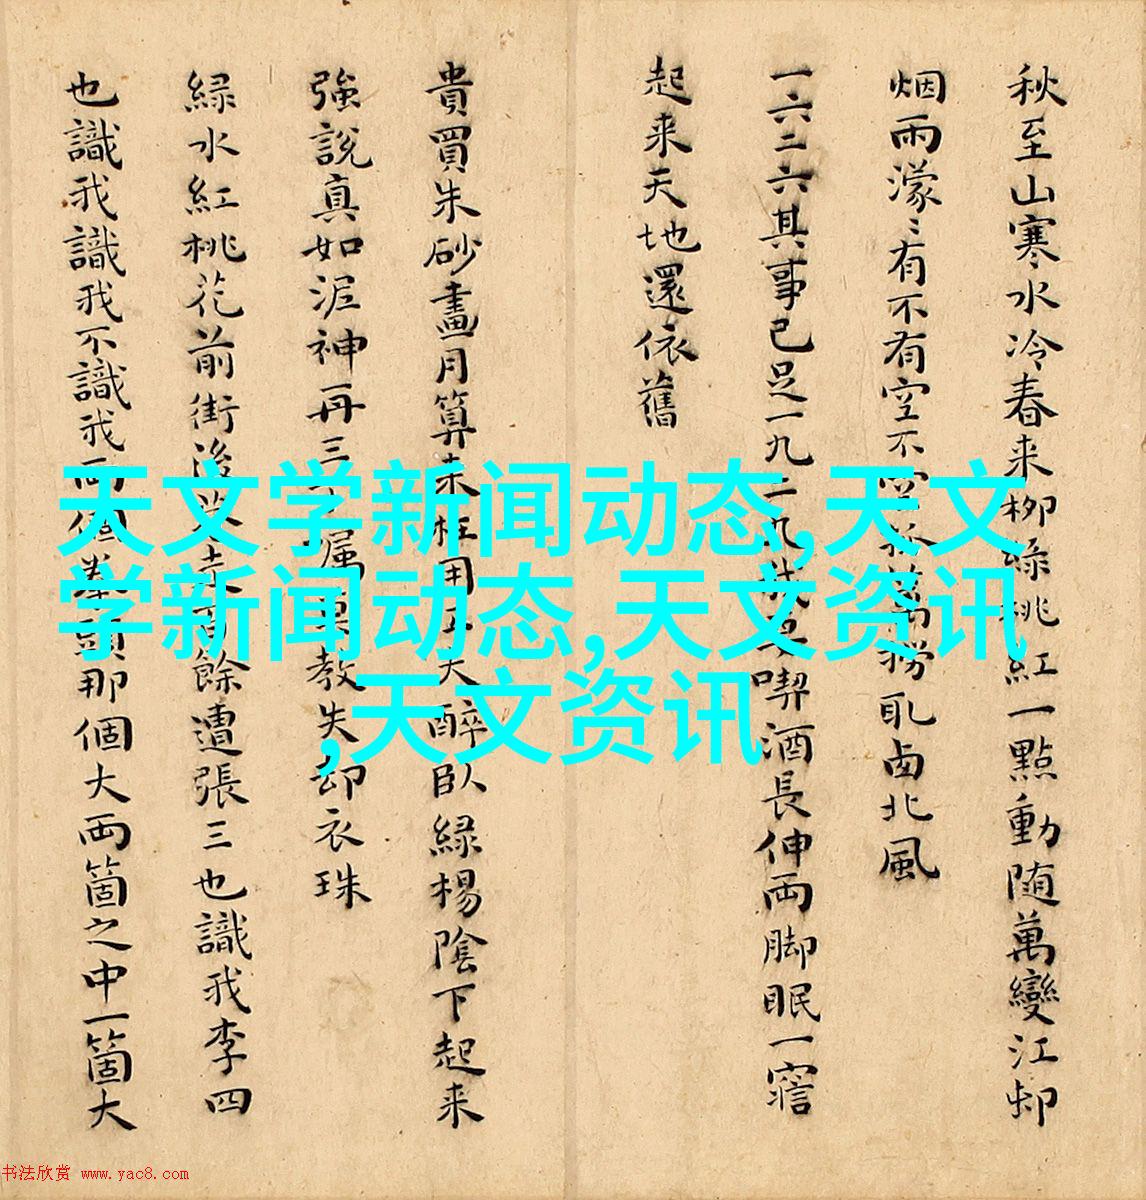 秋至山寒水冷春来柳綠桃紅一點動随萬變江邨
烟雨濛〻有不有空不
撈取西北風
一六二六其事已足一九二九
喫酒長伸両脚眠一寤
起来天地還依舊
貴買朱砂畫月算来枉用
醉臥綠楊陰下起来
強說真如泥神再三
教失却衣珠
綠水紅桃花前街
餘遭張三也識我李四
也識我識我不識我両個拳頭那個大両箇之中一箇大
天文学新闻动态,天文
学新闻动态,天文资讯
,天文资讯
书法欣赏 www.yac8.com